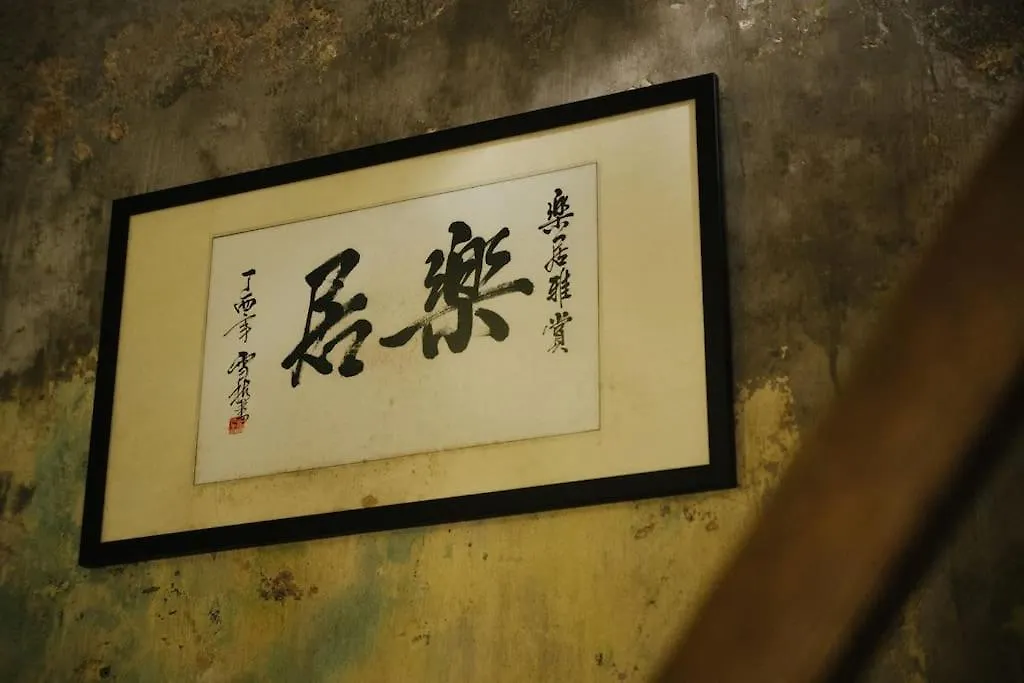 樂居雅賞
樂居
丁酉年